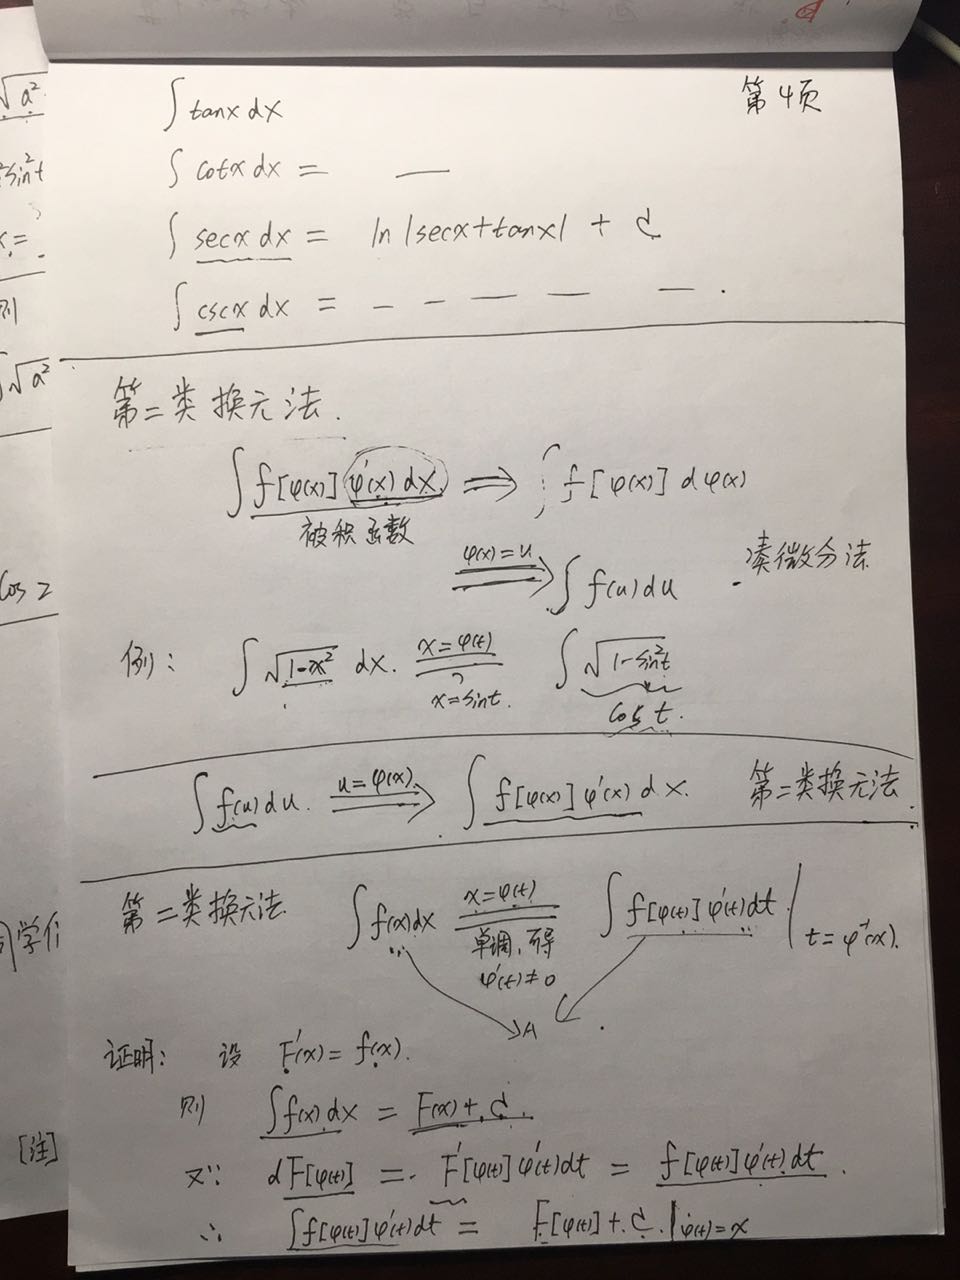 第4页
∫ tanx dx
∫ cotx dx = —
∫ secx dx = ln |secx+tanx| + C
∫ cscx dx = — — — — — .
第二类换元法.
∫ f[φ(x)] φ'(x) dx ⟹ ∫ f[φ(x)] dφ(x)
被积函数
φ(x)=u ⟹ ∫ f(u) du 凑微分法
例: ∫ √(1-x²) dx. x=φ(t) x=sint. ∫ √(1-sin²t)
cos t.
∫ f(u) du. u=φ(x) ⟹ ∫ f[φ(x)] φ'(x) dx. 第二类换元法.
第二类换元法 ∫ f(x)dx x=φ(t) ∫ f[φ(t)] φ'(t)dt | t=φ⁻¹(x).
单调,可导
φ'(t)≠0
A
证明: 设 F'(x)= f(x).
则 ∫f(x)dx = F(x)+C.
又∵ dF[φ(t)] = F'[φ(t)] φ'(t)dt = f[φ(t)] φ'(t) dt.
∴ ∫f[φ(t)] φ'(t)dt = F[φ(t)]+C. | φ(t)=x
√a²
sin²t
x=
则
∫√a²
cos 2
同学们
[注]